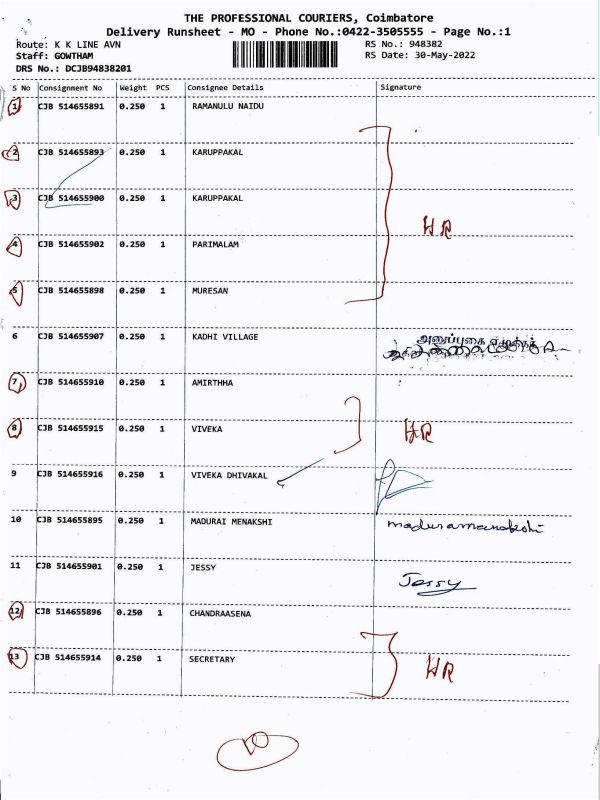 THE PROFESSIONAL COURIERS, Coimbatore
Delivery Runsheet - MO - Phone No.:0422-3505555 - Page No.:1
Route: K K LINE AVN RS No.: 948382
Staff: GOWTHAM RS Date: 30-May-2022
DRS No.: DCJB94838201
S No Consignment No Weight PCS Consignee Details Signature
1 CJB 514655891 0.250 1 RAMANULU NAIDU
2 CJB 514655893 0.250 1 KARUPPAKAL
3 CJB 514655900 0.250 1 KARUPPAKAL
HR
4 CJB 514655902 0.250 1 PARIMALAM
5 CJB 514655898 0.250 1 MURESAN
6 CJB 514655907 0.250 1 KADHI VILLAGE
7 CJB 514655910 0.250 1 AMIRTHHA
8 CJB 514655915 0.250 1 VIVEKA HR
9 CJB 514655916 0.250 1 VIVEKA DHIVAKAL
10 CJB 514655895 0.250 1 MADURAI MENAKSHI
11 CJB 514655901 0.250 1 JESSY Jessy
12 CJB 514655896 0.250 1 CHANDRAASENA
13 CJB 514655914 0.250 1 SECRETARY HR